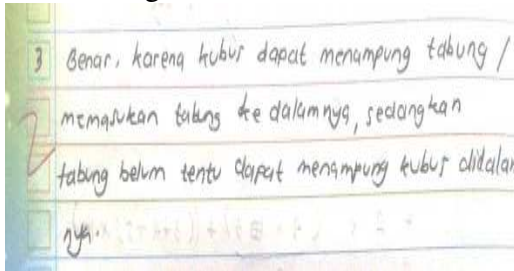 3 Benar, karena kubus dapat menampung tabung /
memasukan tabung ke dalamnya, sedangkan
tabung belum tentu dapat menampung kubus didalam
nya.